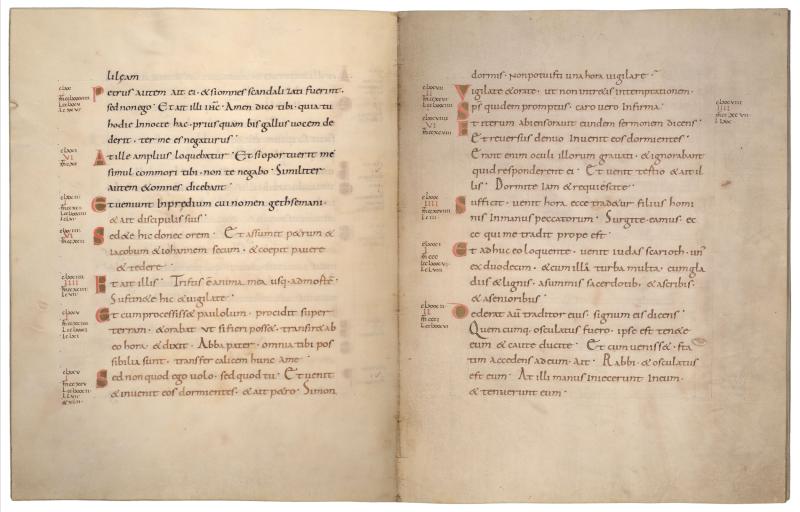 lilęam
Petrus autem ait ei · & si omnes scandalizati fuerint ·
sed non ego · Et ait illi ihc · Amen dico tibi · quia tu
hodie Innocte hac · prius quam bis gallus uocem de
derit · ter me es negaturus ·
At ille amplius loquebatur · Et si oportuerit me
simul commori tibi · non te negabo · Similiter
autem & omnes dicebant ·
Et ueniunt Inprędium cui nomen gethsemani ·
& ait discipulis suis ·
Sed&e hic donec orem · Et assumit p&rum &
iacobum & iohannem secum · & coepit pauere
& tedere ·
Et ait illis · Tristis ē anima mea usq; ad mortē ·
Sustin&e hic & uigilate ·
Et cum processiss& paululum · procidit super
terram · & orabat ut si fieri poss& · transir& ab
eo hora · & dixit · Abba pater · omnia tibi pos
sibilia sunt · transfer calicem hunc a me ·
Sed non quod ego uolo · sed quod tu · Et uenit
& inuenit eos dormientes · & ait p&ro · Simon
dormis · Non potuisti una hora uigilare ·
Vigilate & orate · ut non intr&is intemptationem ·
Sps quidem promptus · caro uero Infirma ·
Et iterum abiens orauit eundem sermonem dicens ·
Et reuersus denuo Inuenit eos dormientes ·
Erant enim oculi illorum grauati · & ignorabant
quid responderent ei · Et uenit tertio & ait il
lis · Dormite Iam & requiescite ·
Sufficit · uenit hora ecce trad&ur filius homi
nis Inmanus peccatorum · Surgite eamus · ec
ce qui me tradit prope est ·
Et adhuc eo loquente · uenit iudas scarioth · un'
ex duodecim · & cum illo turba multa · cum gla
diis & lignis · asummis sacerdotib; · & ascribis ·
& asenioribus ·
Dederat aut traditor eius · signum eis dicens ·
Quemcumq; osculatus fuero · ipse est ten&e
eum & caute ducite · Et cum ueniss& · sta
tim accedens ad eum · ait · Rabbi · & osculatus
est eum · At illi manus iniecerunt In eum ·
& tenuerunt eum ·